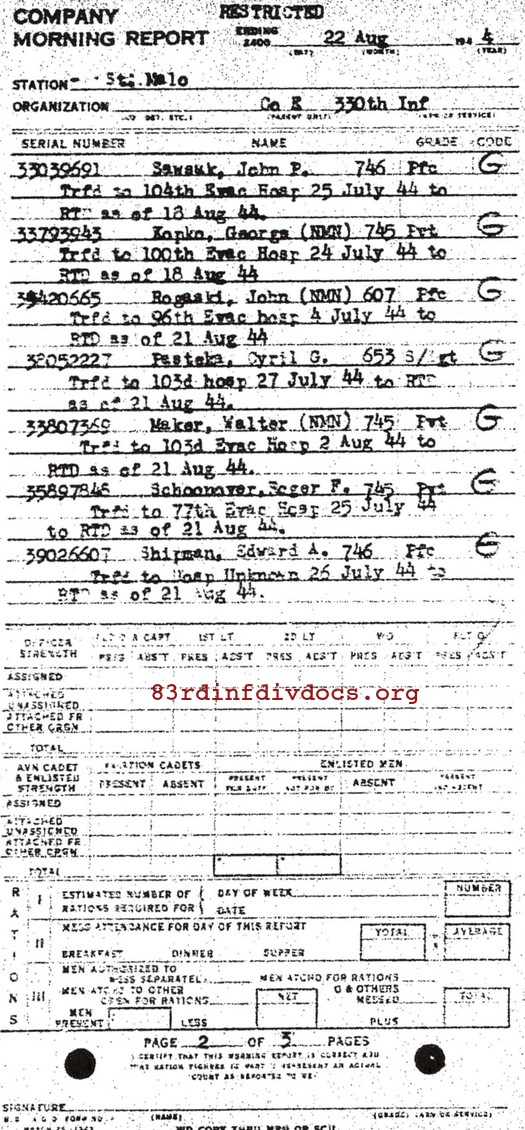 COMPANY RESTRICTED
MORNING REPORT ENDING 2400 22 Aug 194 4
(DAY) (MONTH) (YEAR)
STATION St. Malo
ORGANIZATION Co E 330th Inf
SERIAL NUMBER NAME GRADE CODE
33039691 Sawsuk, John P. 746 Pfc G
Trfd to 104th Evac Hosp 25 July 44 to
RTD as of 18 Aug 44.
33793943 Kopko, George (NMN) 745 Pvt G
Trfd to 100th Evac Hosp 24 July 44 to
RTD as of 18 Aug 44
Rogaski, John (NMN) 607 Pfc G
Trfd to 96th Evac hosp 4 July 44 to
RTD as of 21 Aug 44
38052227 Pasteka, Cyril G. 653 S/Sgt G
Trfd to 103d hosp 27 July 44 to RTD
as of 21 Aug 44.
33807369 Maker, Walter (NMN) 745 Pvt G
Trfd to 103d Evac Hosp 2 Aug 44 to
RTD as of 21 Aug 44.
35897846 Schoonover, Roger F. 745 Pvt G
Trfd to 77th Evac Hosp 25 July 44
to RTD as of 21 Aug 44.
39026607 Shipman, Edward A. 746 Pfc
Trfd to Hosp Unknown 26 July 44 to
RTD as of 21 Aug 44.
OFFICER STRENGTH CAPT 1ST LT 2D LT W O FLT O
PRES ABS'T PRES ABS'T PRES ABS'T PRES ABS'T PRES ABS'T
ASSIGNED
83rdinfdivdocs.org
ATTACHED UNASSIGNED
ATTACHED FR OTHER ORGN
TOTAL
AVN CADET & ENLISTED STRENGTH AVIATION CADETS ENLISTED MEN
PRESENT ABSENT PRESENT FOR DUTY PRESENT NOT FOR DUTY ABSENT PRESENT AND ABSENT
ASSIGNED
ATTACHED UNASSIGNED
ATTACHED FR OTHER ORGN
TOTAL
RATIONS
I ESTIMATED NUMBER OF RATIONS REQUIRED FOR DAY OF WEEK NUMBER
DATE
II MESS ATTENDANCE FOR DAY OF THIS REPORT TOTAL AVERAGE
BREAKFAST DINNER SUPPER
III MEN AUTHORIZED TO MESS SEPARATELY MEN ATCHD FOR RATIONS
MEN ATCHD TO OTHER ORGN FOR RATIONS NET O & OTHERS MESSED TOTAL
MEN PRESENT LESS PLUS
PAGE 2 OF 3 PAGES
I CERTIFY THAT THIS MORNING REPORT IS CORRECT AND
THAT RATION FIGURES IN PART REPRESENT AN ACTUAL
COUNT AS REPORTED TO ME
SIGNATURE
(NAME) (GRADE) (ARM OR SERVICE)